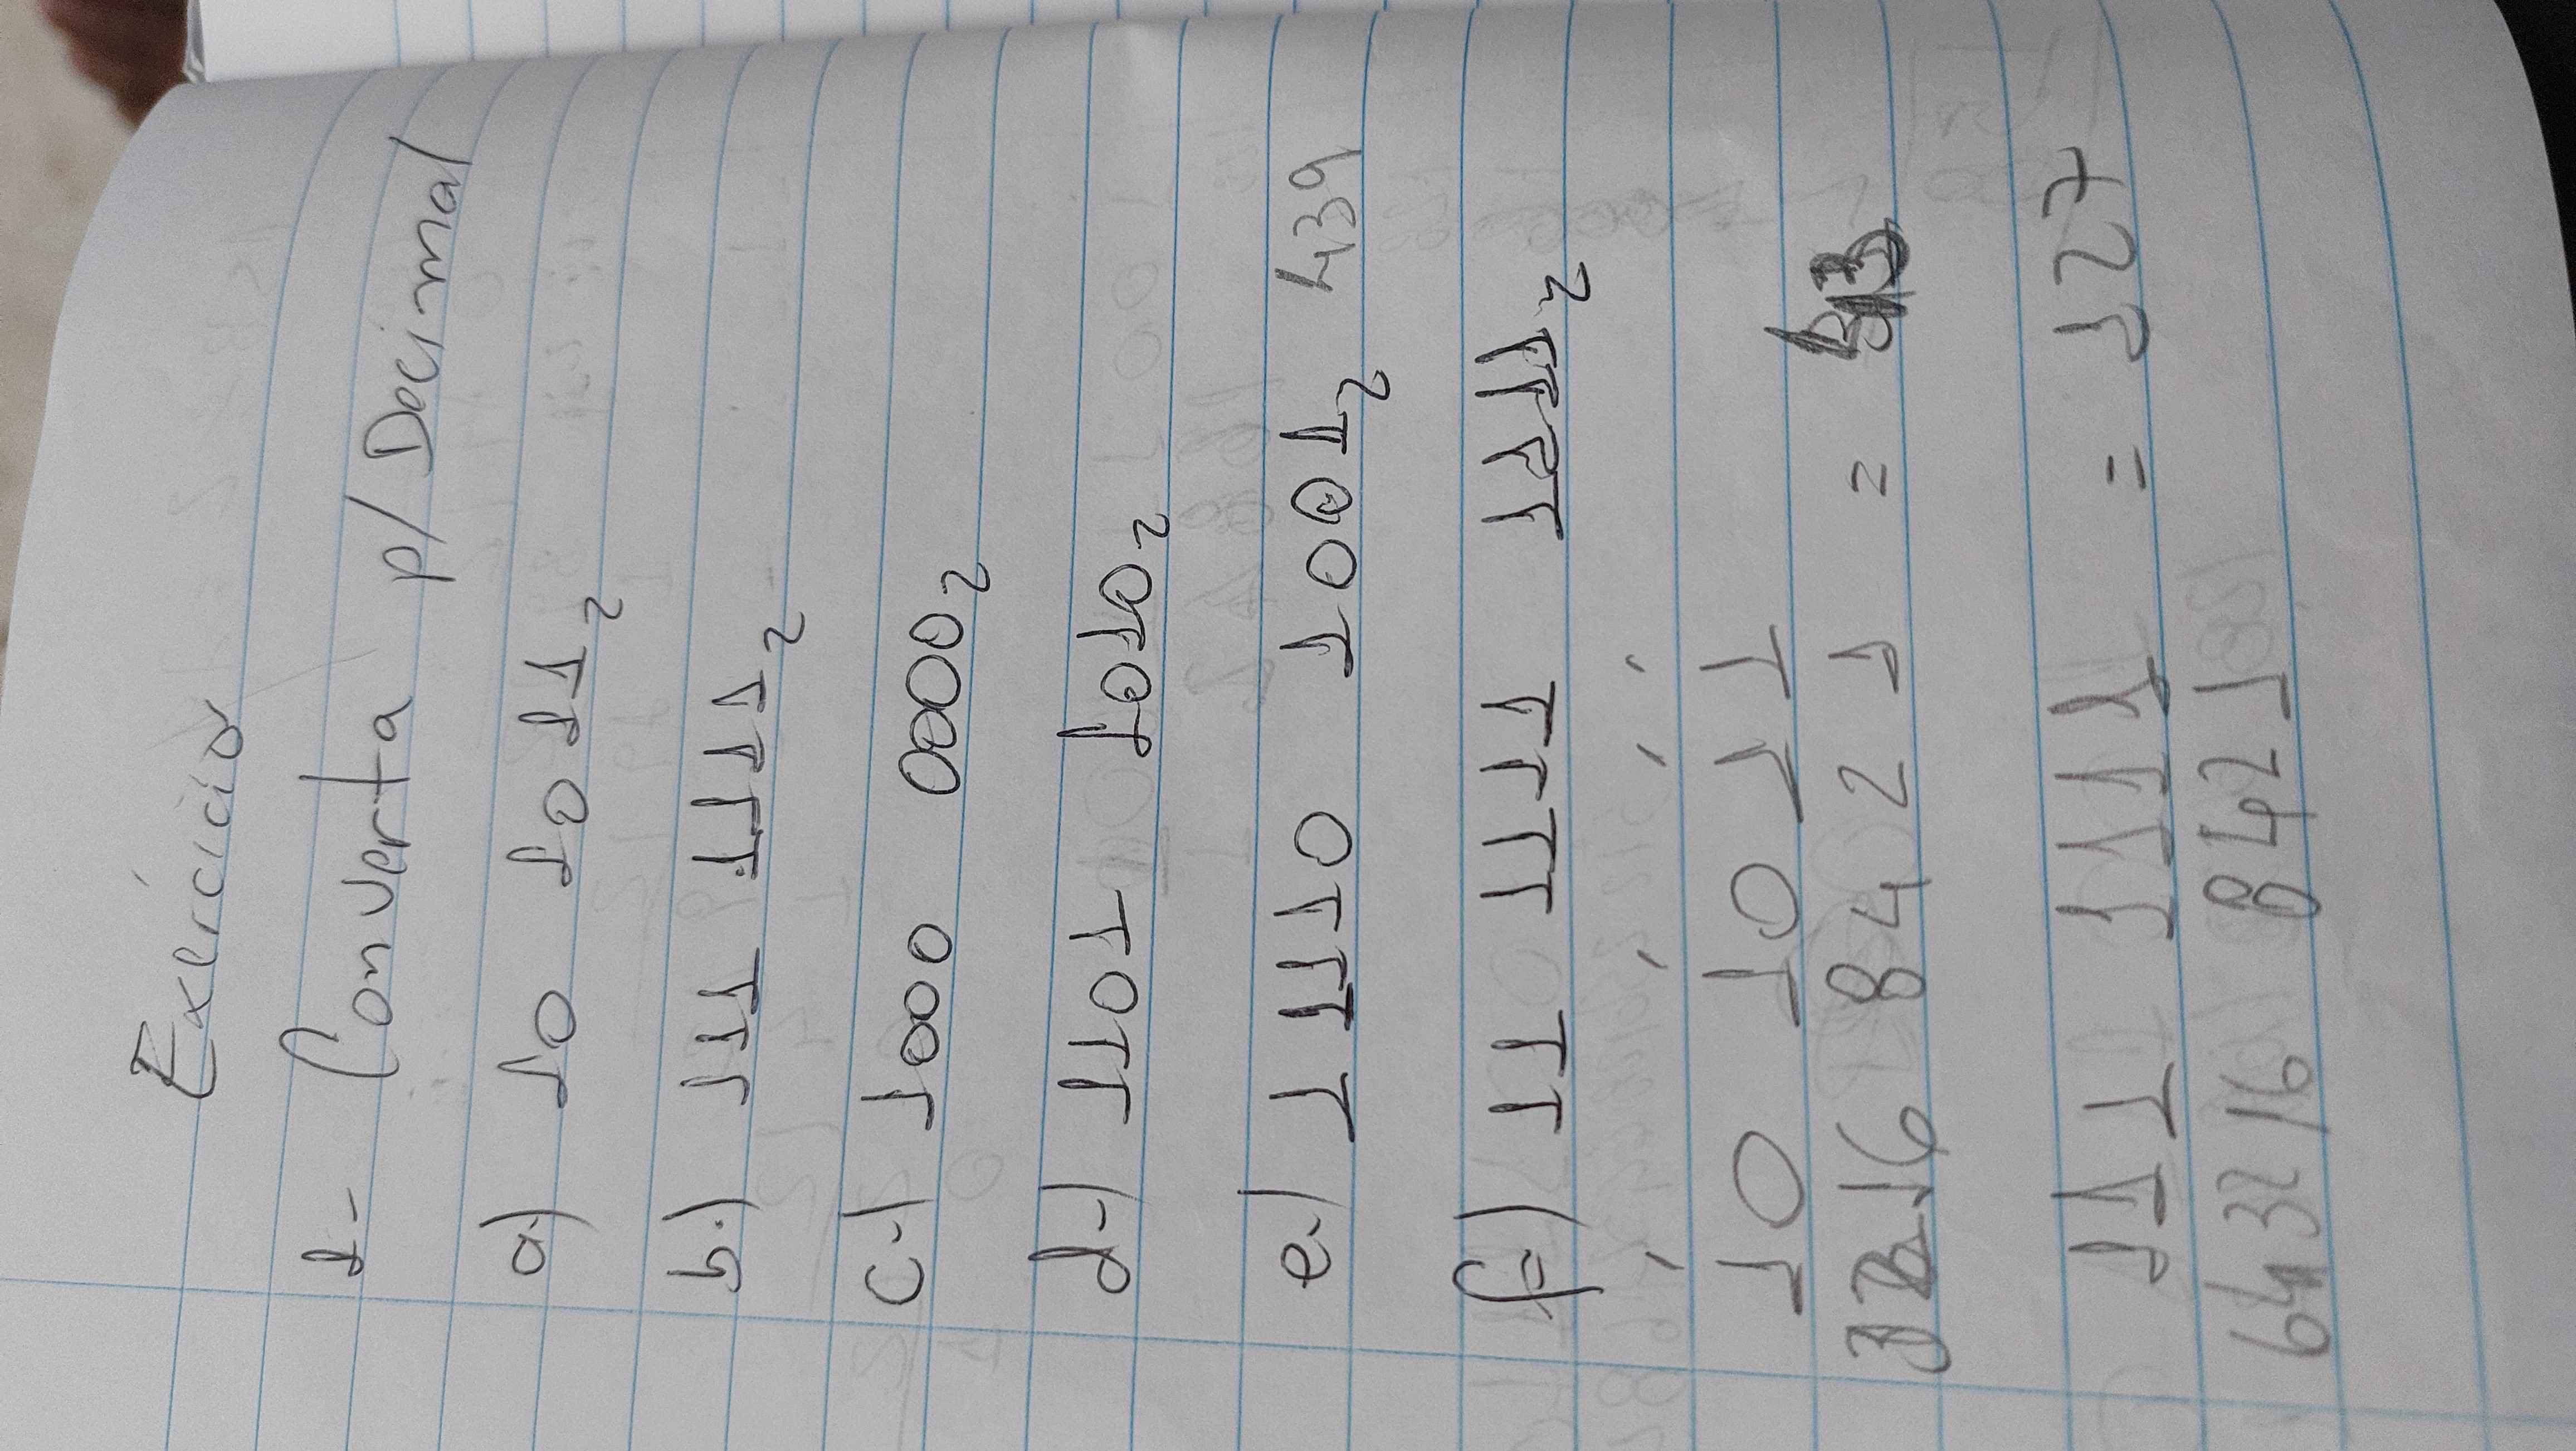 Exercício
1- Converta p/ Decimal
a) 10 1011₂
b.) 111 1111₂
c-) 1000 0000₂
d-) 1101 1010₂
e.) 1 1110 1001₂ 439
f) 11 1111 1111₂
10 1011
32 16 8 4 2 1 = 43
111 1111 = 127
64 32 16 8 4 2 1